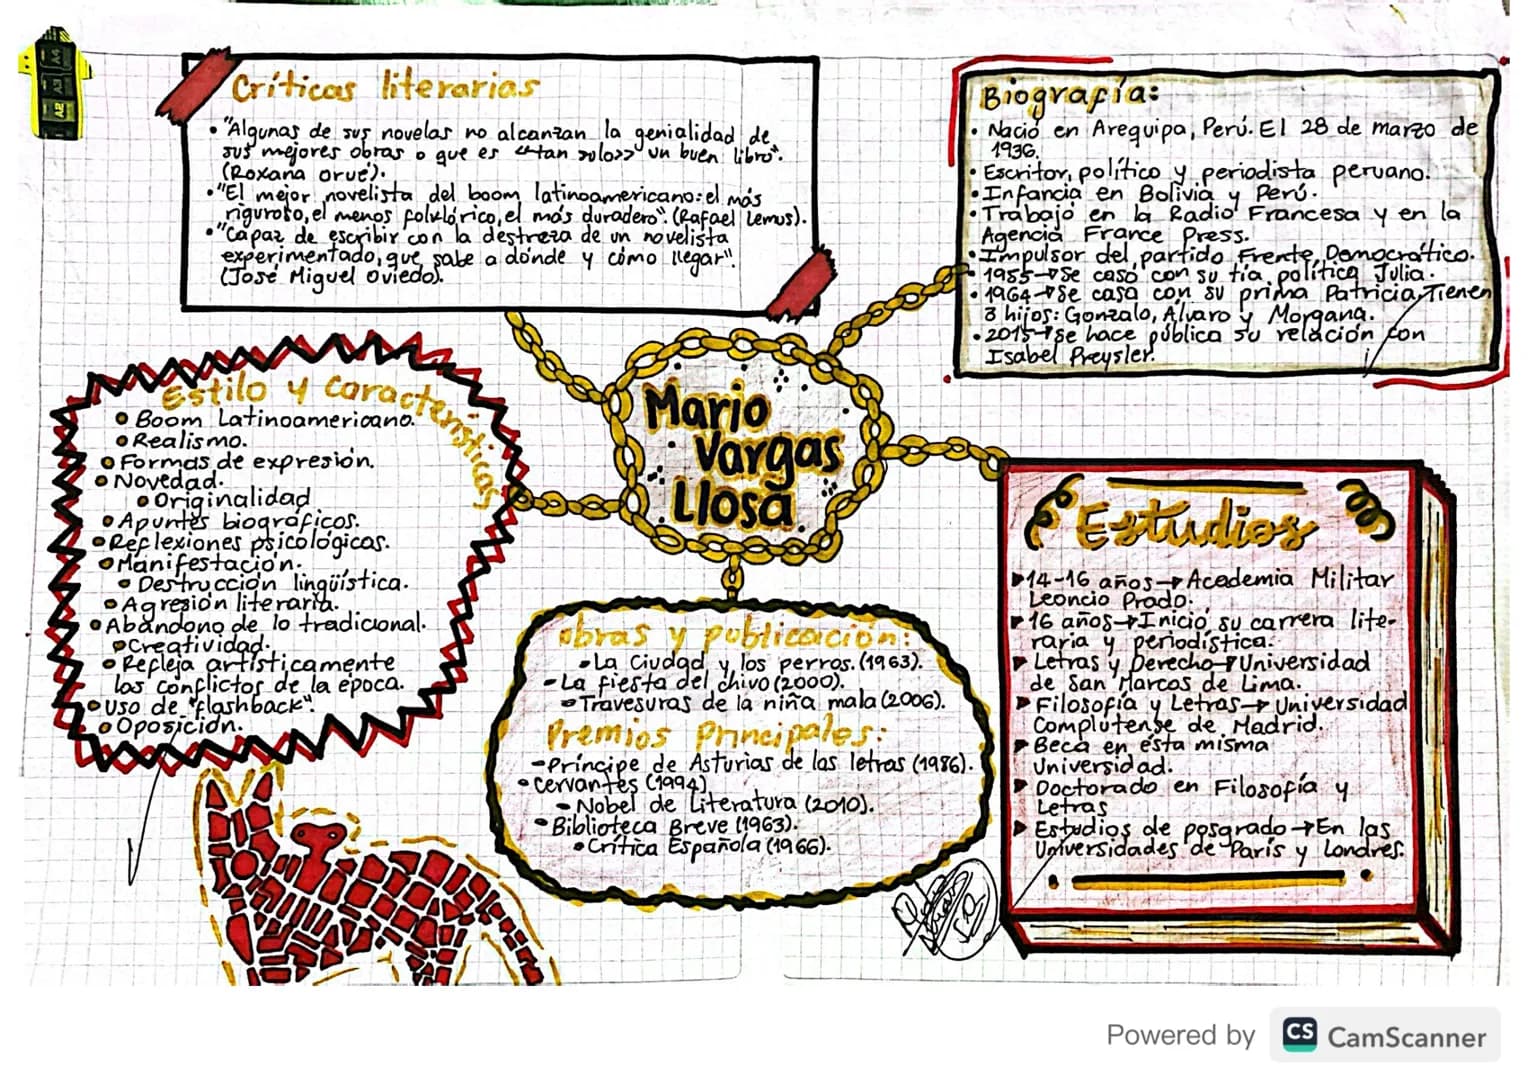 Críticas literarias
• "Algunas de sus novelas no alcanzan la genialidad de
sus mejores obras o que es <<tan solo>> un buen libro".
(Roxana orué).
• "El mejor novelista del boom latinoamericano: el más
riguroso, el menos folklórico, el más duradero". (Rafael Lemus).
• "Capaz de escribir con la destreza de un novelista
experimentado, que sabe a dónde y cómo llegar".
(José Miguel Oviedo).
Biografía:
• Nació en Arequipa, Perú. El 28 de marzo de
1936.
• Escritor, político y periodista peruano.
• Infancia en Bolivia y Perú.
• Trabajó en la Radio Francesa y en la
Agencia France Press.
• Impulsor del partido Frente Democrático.
• 1955→Se casó con su tía política Julia.
• 1964→Se casa con su prima Patricia, Tienen
3 hijos: Gonzalo, Álvaro y Morgana.
• 2015→Se hace pública su relación con
Isabel Preysler.
Mario
Vargas
Llosa
Estilo y características
• Boom Latinoamericano.
• Realismo.
• Formas de expresión.
• Novedad.
• Originalidad
• Apuntes biográficos.
• Reflexiones psicológicas.
• Manifestación.
• Destrucción lingüística.
• Agresión literaria.
• Abandono de lo tradicional.
• Creatividad.
• Refleja artísticamente
los conflictos de la época.
• Uso de "flashback".
• Oposición.
Obras y publicación:
• La Ciudad y los perros. (1963).
• La fiesta del chivo (2000).
• Travesuras de la niña mala (2006).
Premios Principales:
• Príncipe de Asturias de las letras (1986).
• Cervantes (1994)
• Nobel de Literatura (2010).
• Biblioteca Breve (1963).
• Crítica Española (1966).
Estudios
▶ 14-16 años→Academia Militar
Leoncio Prado.
▶ 16 años→Inició su carrera lite-
raria y periodística.
▶ Letras y Derecho→Universidad
de San Marcos de Lima.
▶ Filosofía y Letras→Universidad
Complutense de Madrid.
▶ Beca en esta misma
Universidad.
▶ Doctorado en Filosofía y
Letras
▶ Estudios de posgrado→En las
Universidades de París y Londres.
A4
A3
A2
Powered by CS CamScanner